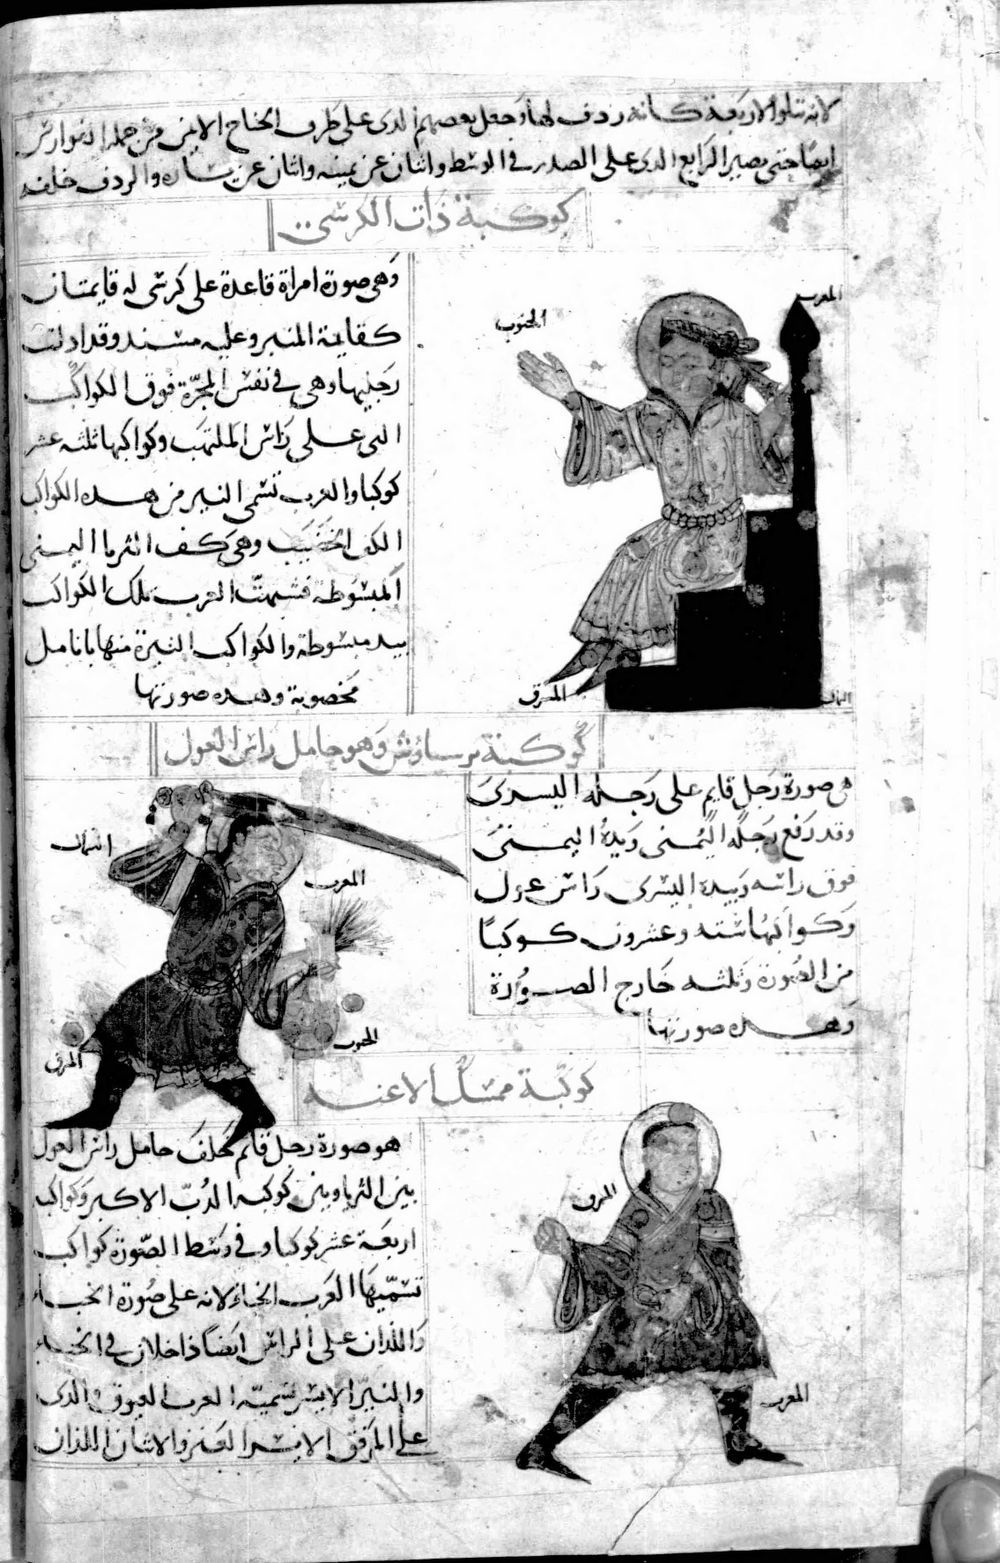 لانه تتلو الاربعة كانه ردف لها وجعل بعضهم الذى على طرف الجناح الايمن من جملة الفوارس
ايضا حتى يصير الرابع الذى على الصدر فى الوسط واثنان عن يمينه واثنان عن يساره والردف خلفه
كوكبة ذات الكرسى
وهى صورة امراة قاعدة على كرسى له قايمتان
كقايمة المنبر وعليه مسند وقد ادلت
رجليها وهى فى نفس المجرّة فوق الكواكب
التى على راس الملتهب وكواكبها ثلثه عشر
كوكبا والعرب تسمى النير من هذه الكواكب
الكف الخضيب وهى كف الثريا اليمنى
المبسوطة فشبهت العرب تلك الكواكب
بيد مبسوطة والكواكب النيرة منها بانامل
مخضوبة وهذه صورتها
المغرب
الجنوب
المشرق
الشمال
كوكبة برساوش وهو حامل راس الغول
هى صورة رجل قايم على رجله اليسرى
وقد رفع رجله اليمنى ويده اليمنى
فوق راسه وبيده اليسرى راس غول
وكواكبها ستة وعشرون كوكبًا
من الصورة وثلثه خارج الصورة
وهذه صورتها
الشمال
المغرب
الجنوب
المشرق
كوكبة ممسك الاعنه
هو صورة رجل قايم خلف حامل راس الغول
بين الثريا وبين كوكبه الدُبّ الاكبر وكواكبه
اربعة عشر كوكبا وفى وسط الصّورة كواكب
تسمّيها العرب الخباء لانه على صُورة الخباء
واللذان على الراس ايضًا داخلان فى الخباء
والنيّر الايسر تسميه العرب العيوق والذى
على المرفق الايسر العنز والاثنان اللذان
المشرق
المغرب